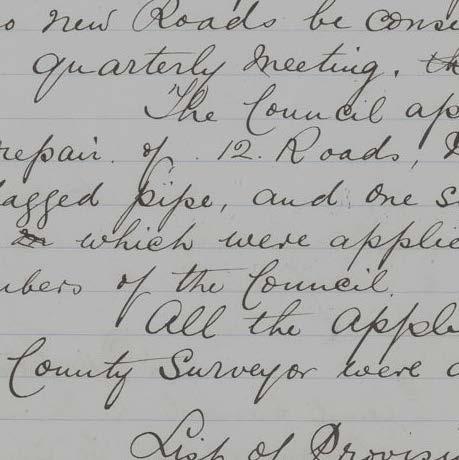 o new Roads be conse
quarterly meeting. th
The Council ap
repair of 12 Roads,
lagged pipe, and one s
which were applie
mbers of the Council.
All the appli
County Surveyor were
List of Provisi